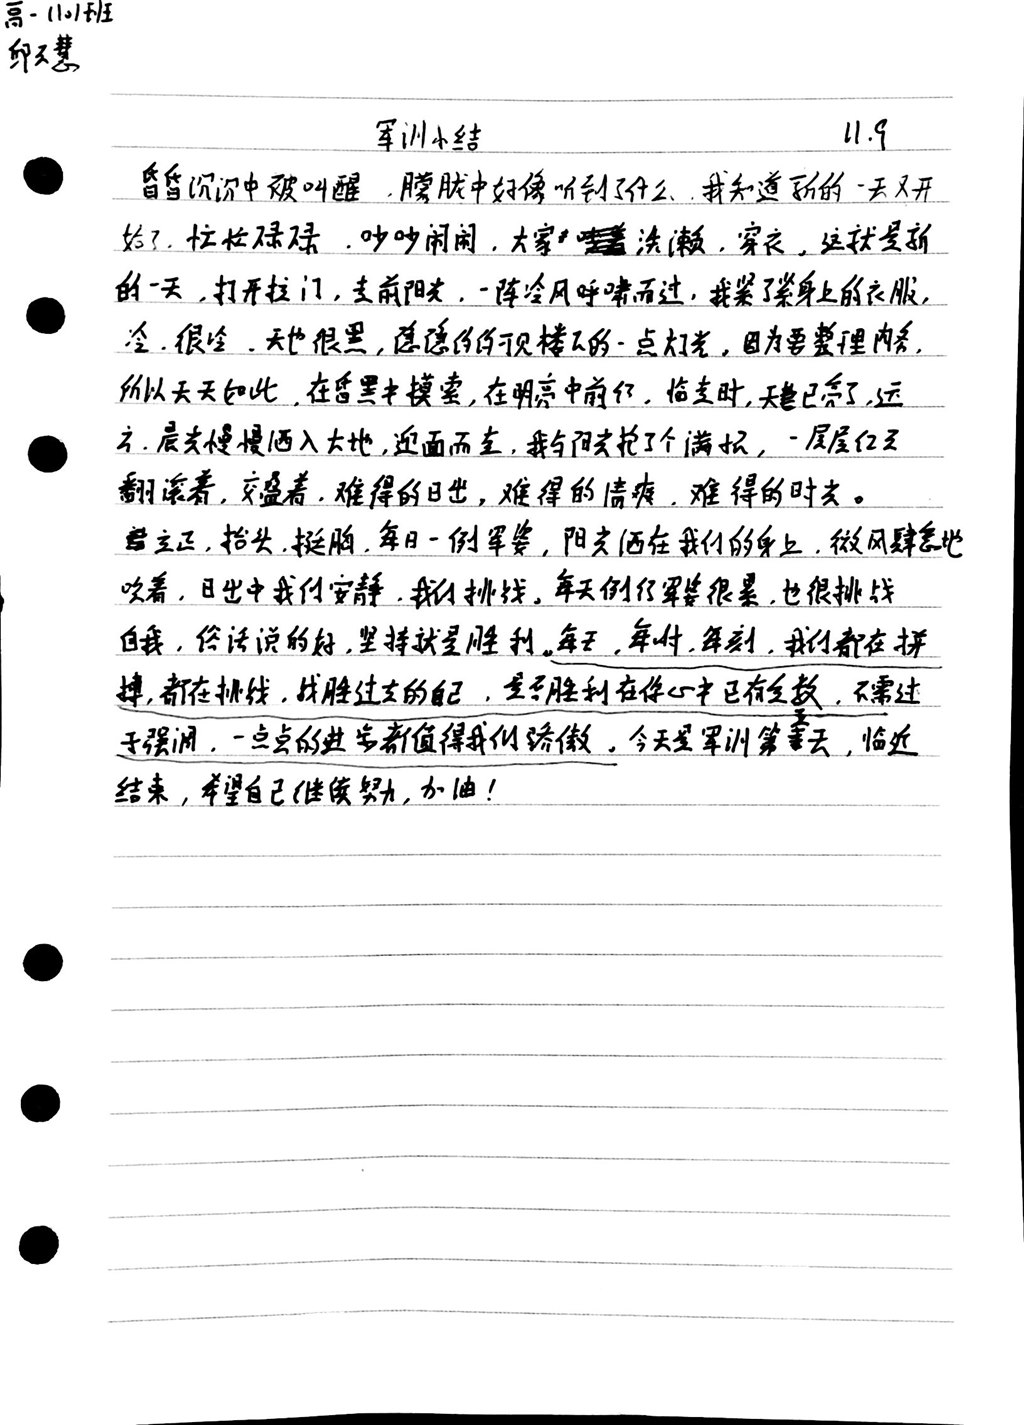 高一1101班
邱天慧
军训小结 11.9
昏昏沉沉中被叫醒，朦胧中好像听到了什么，我知道新的一天又开
始了，忙忙碌碌，吵吵闹闹，大家洗漱，穿衣。这就是新
的一天，打开拉门，走前阳光，一阵冷风呼啸而过，我紧了紧身上的衣服，
冷，很冷，天也很黑，隐隐约约可见楼下的一点灯光。因为要整理内务，
所以天天如此，在昏黑中摸索，在明亮中前行，临走时，天已亮了，远
方，晨光慢慢洒入大地，迎面而走，我与阳光抱了个满怀，一层层红云
翻滚着，交叠着，难得的日出，难得的清爽，难得的时光。
立正，抬头，挺胸，每日一例军姿，阳光洒在我们的身上，微风肆意地
吹着，日出中我们安静，我们挑战。每天例行军姿很累，也很挑战
自我，俗话说的好，坚持就是胜利。每天，每时，每刻，我们都在拼
搏，都在挑战，战胜过去的自己，是否胜利在你心中已有定数，不需过
于强调，一点点的进步都值得我们骄傲。今天是军训第五天，临近
结束，希望自己继续努力，加油！